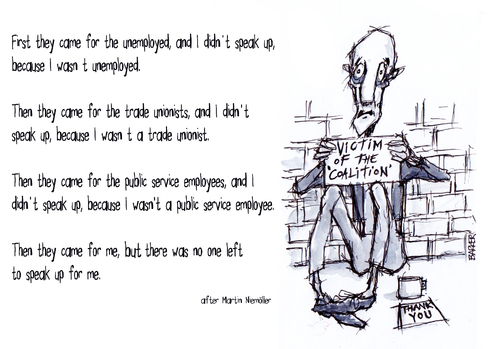 First they came for the unemployed, and I didn't speak up,
because I wasn t unemployed.
Then they came for the trade unionists, and I didn't
speak up, because I wasn t a trade unionist.
Then they came for the public service employees, and I
didn't speak up, because I wasn't a public service employee.
Then they came for me, but there was no one left
to speak up for me.
after Martin Niemöller
VICTIM
OF THE
'COALITION'
THANK
YOU
BAKER